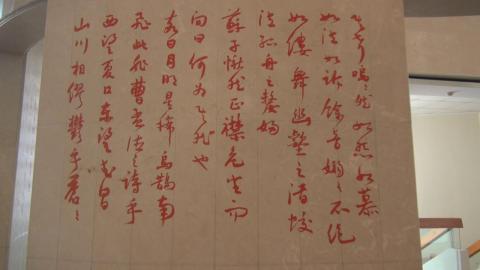 其聲嗚〻然如怨如慕
如泣如訴餘音嫋〻不絕
如縷舞幽壑之潛蛟
泣孤舟之嫠婦
蘇子愀然正襟危坐而
問曰何為其然也
客曰月明星稀烏鵲南
飛此非曹孟德之詩乎
西望夏口東望武昌
山川相繆鬱乎蒼〻